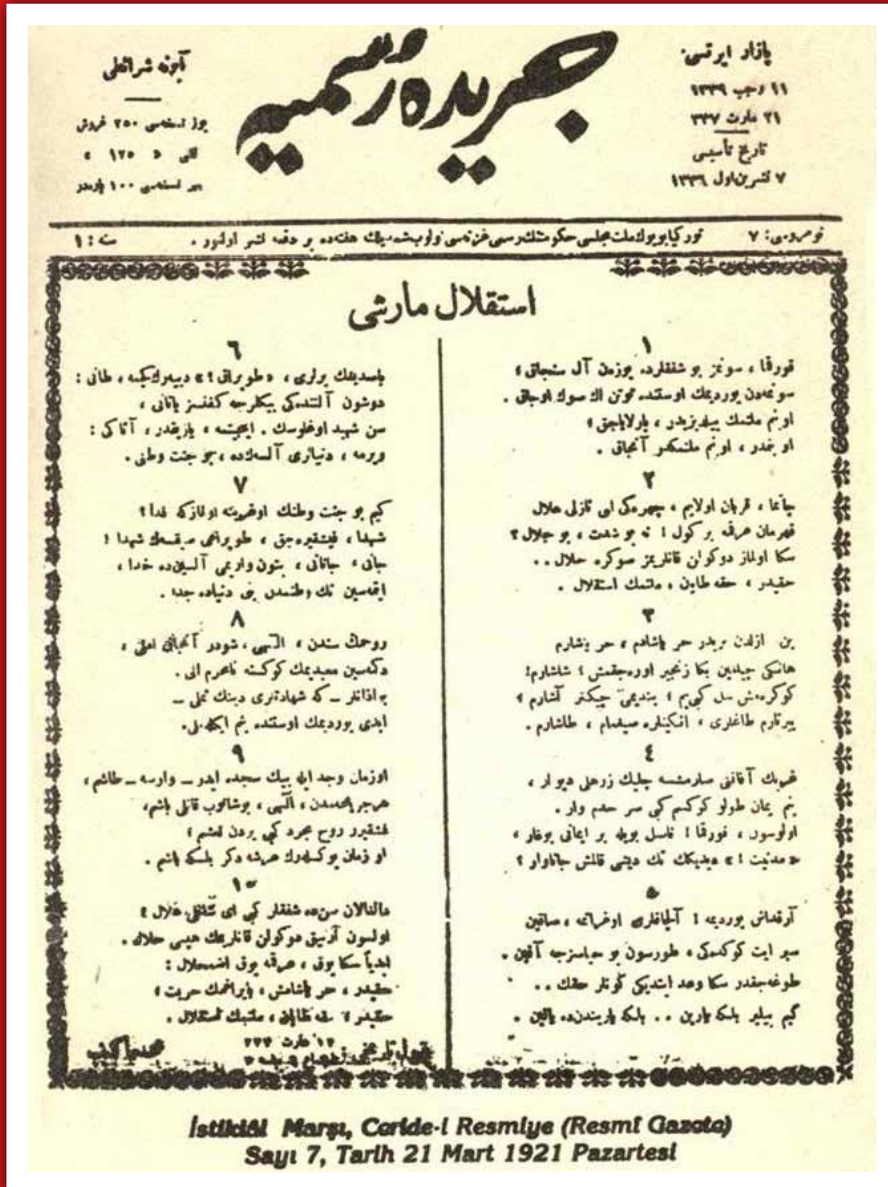 پازار ایرتسی
۱۱ رجب ۱۳۳۹
۲۱ مارت ۳۳۷
تاریخ تأسیسی
۷ تشرین اول ۱۳۳۶
جریدهٔ رسمیه
آبونه شرائطی
یوز نسخه‌سی ۲۵۰ غروش
اللی « ۱۲۵ »
بهر نسخه‌سی ۱۰۰ پاره‌در
نومروسی: ۷
تورکیا بویوك ملت مجلسی حکومتنك رسمی غزته‌سی اولوب شمدیلك هفته‌ده بر دفعه نشر اولنور .
سنه : ۱
استقلال مارشی
۱
قورقما ، سونمز بو شفقلرده یوزن آل سنجاق ؛
سونمه‌دن یوردیمك اوستنده توتن اك صوك اوجاق .
او بنم ملتمك ییلدیزیدر ، پارلایاجق ؛
او بنمدر ، او بنم ملتمكدر آنجاق .
۲
چاتما ، قربان اولایم ، چهره‌كی ای نازلی هلال
قهرمان عرقمه بر كول ! نه بو شدت ، بو جلال ؟
سكا اولماز دوكولن قانلریمز صوكره حلال . .
حقیدر ، حقه طاپان ، ملتمك استقلال .
۳
بن ازلدن بریدر حر یاشادم ، حر یاشارم
هانكی چیلغین بكا زنجیر اوره‌جقمش ؛ شاشارم!
كوكره‌مش سل كبی‌یم ؛ بندیمی چیكنر آشارم ؛
ییرتارم طاغلری ، انكینلره صیغمام ، طاشارم .
۴
غربك آفاقنی صارمشسه چلیك زرهلی دیوار ،
بنم ایمان طولو كوكسم كبی سر حدم وار .
اولوسون ، قورقما ! ناصل بویله بر ایمانی بوغار ،
« مدنیت ! » دیدیكك تك دیشی قالمش جاناوار ؟
۵
آرقداش یوردیمه ! آلچاقلری اوغراتمه ، صاقین
سپر ایت كوكده‌كی ، طورسون بو حیاسزجه آقین .
طوغه‌جقدر سكا وعد ایتدیكی كونلر حقك . .
كیم بیلیر بلكه یارین . . بلكه یاریندن ده یاقین .
۶
باصدیغك یرلری ، « طوپراق ! » دییه‌رك كچمه ، طانی :
دوشون آلتنده‌كی بیكلرجه كفنسز یاتانی ،
سن شهید اوغلوسك . اینجیتمه ، یازیقدر ، آتاكی :
ویرمه ، دنیالری آلسه‌ك‌ده ، بو جنت وطنی .
۷
كیم بو جنت وطنك اوغرینه اولمازكه فدا ؟
شهدا ، فیشقیره‌جق ، طوپراغی صیقسه‌ك شهدا !
جانی ، جانانی ، بتون واریمی آلسین‌ده خدا ،
ایتمه‌سین تك وطنمدن بنی دنیاده جدا .
۸
روحمك سندن ، الٓهی ، شودر آنجاق املی ،
دكمه‌سین معبدیمك كوكسنه نامحرم الی .
بو اذانلر ــ كه شهادتلری دینك تملی ــ
ابدی یوردیمك اوستنده بنم ایكله‌ملی.
۹
اوزمان وجد ایله بیك سجده ایدر ــ وارسه ــ طاشم ،
هرجریحه‌مدن ، الٓهی ، بوشانوب قانلی یاشم،
فیشقیرر روح مجرد كبی یردن نعشم ؛
او زمان یوكسله‌رك عرشه دكر بلكه باشم .
۱۰
دالغالان سن‌ده شفقلر كبی ای شانلی هلال ؛
اولسون آرتیق دوكولن قانلریمك هپسی حلال .
ابدیاً سكا یوق ، عرقمه یوق اضمحلال :
حقیدر ، حر یاشامش ، بایراغمك حریت ؛
حقیدر ، حقه طاپان ، ملتمك استقلال .
۱۲ مارت ۳۳۷
محمد عاكف
İstiklâl Marşı, Ceride-i Resmiye (Resmî Gazete)
Sayı 7, Tarih 21 Mart 1921 Pazartesi